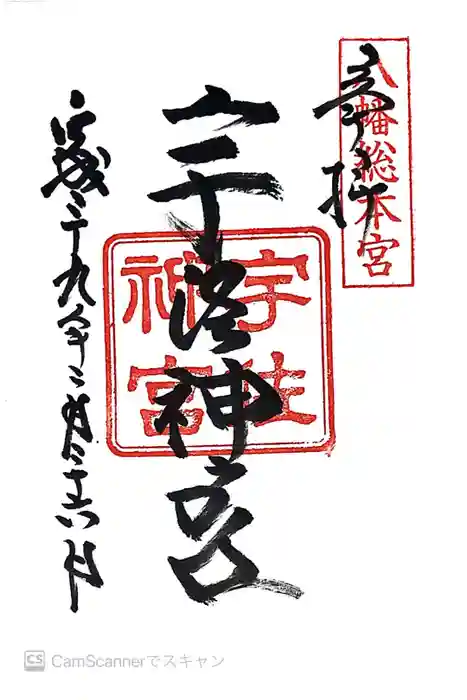 八幡総本宮
奉拝
宇佐神宮
宇佐
神宮
平成二十九年二月二十六日
CS CamScannerでスキャン